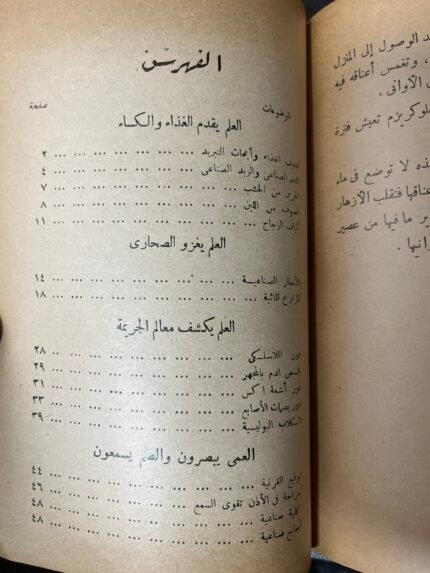 الفهرس
الموضوعات صفحة
العلم يقدم الغذاء والكساء
الغذاء وأبحاث التبريد ... ... ... ... ... ... ٢
الصناعى والزبد الصناعى ... ... ... ... ... ... ٤
الحرير من الخشب ... ... ... ... ... ... ... ٧
الصوف من اللبن ... ... ... ... ... ... ... ٨
ألياف الزجاج ... ... ... ... ... ... ... ... ١١
العلم يغزو الصحارى
الأمطار الصناعية ... ... ... ... ... ... ... ١٤
المزارع المائية ... ... ... ... ... ... ... ... ١٨
العلم يكشف معالم الجريمة
دور اللاسلكى ... ... ... ... ... ... ... ... ٢٨
فحص الدم بالمجهر ... ... ... ... ... ... ... ٢٩
دور أشعة اكس ... ... ... ... ... ... ... ٣١
دور بصمات الأصابع ... ... ... ... ... ... ... ٣٣
الكلاب البوليسية ... ... ... ... ... ... ... ٣٩
العمى يبصرون والصم يسمعون
ترقيع القرنية ... ... ... ... ... ... ... ... ٤٤
جراحة فى الأذن تقوى السمع ... ... ... ... ... ٤٦
كلية صناعية ... ... ... ... ... ... ... ... ٤٨
أصابع صناعية ... ... ... ... ... ... ... ... ٤٨
الوصول إلى المنزل
، وتغمس أعناقه فيه
الأوانى .
تعيش فترة
لا توضع فى ماء
أعناقها فتقلب الأزهار
ما فيها من عصير